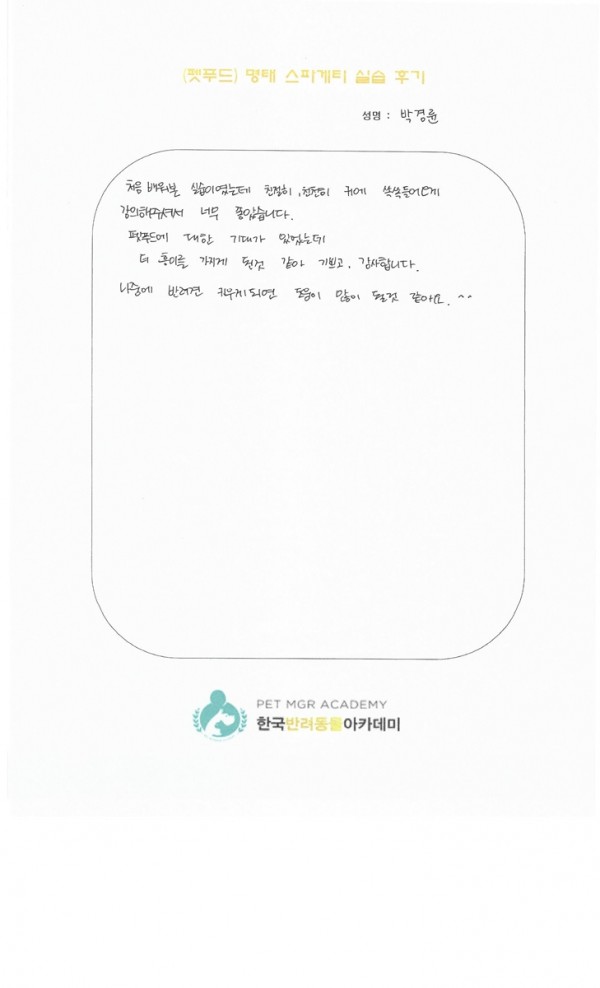 (펫푸드) 명태 스파게티 실습 후기
성명 : 박경륜
처음 배워본 실습이였는데 친절히, 천천히 귀에 쏙쏙들어오게
강의해주셔서 너무 좋았습니다.
펫푸드에 대한 기대가 있었는데
더 흥미를 가지게 된것 같아 기쁘고, 감사합니다.
나중에 반려견 키우게되면 도움이 많이 될것 같아요. ^^
PET MGR ACADEMY
한국반려동물아카데미